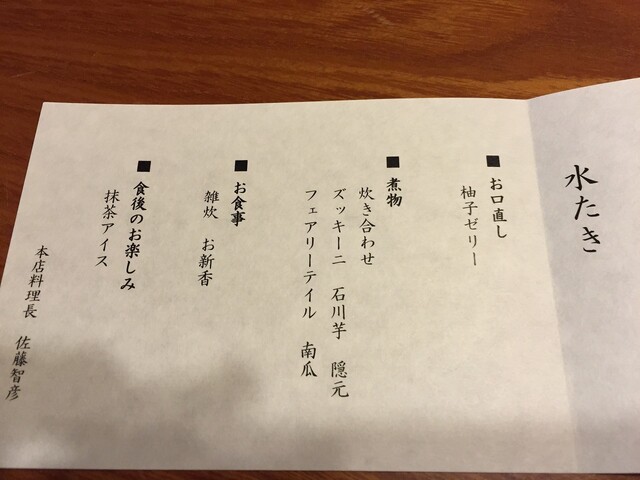 水たき
■お口直し
柚子ゼリー
■煮物
炊き合わせ
ズッキーニ 石川芋 隠元
フェアリーテイル 南瓜
■お食事
雑炊 お新香
■食後のお楽しみ
抹茶アイス
本店料理長 佐藤智彦